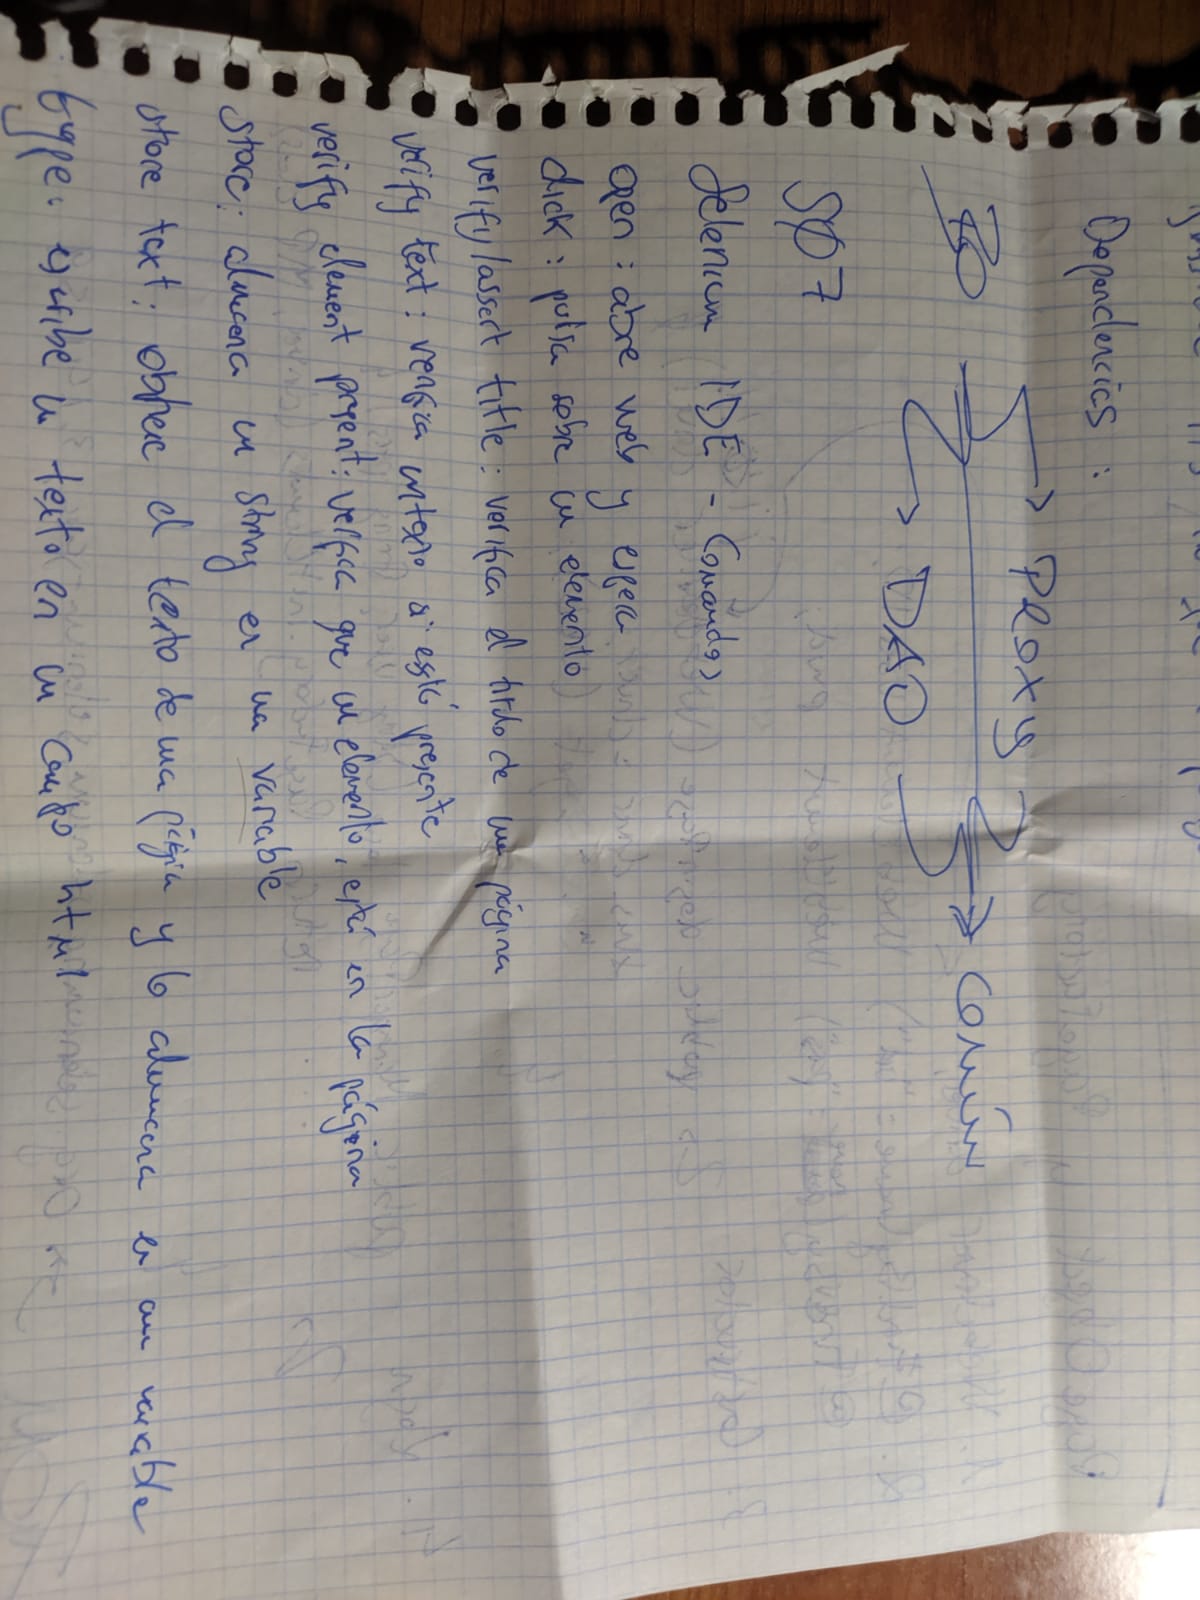 Dependencias :
Proxy
BO
Común
DAO
SØ7
Selenium IDE - Comandos
open : abre web y espera
click : pulsa sobre un elemento
verify/assert title : verifica el titulo de una página
verify text : verifica un texto si está presente
verify element present : verifica que un elemento, está en la página
store : almacena un string en una variable
store text : obtiene el texto de una página y lo almacena en una variable
type : escribe un texto en un campo html